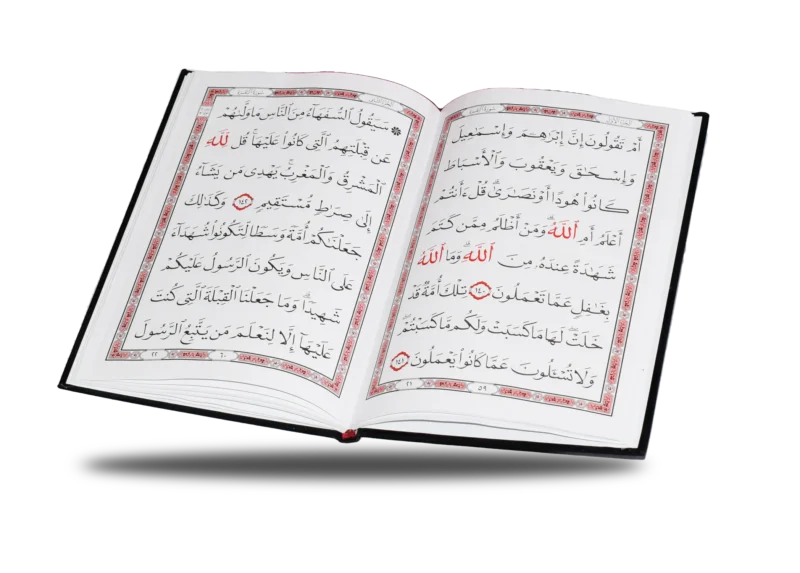 سورة البقرة الجزء الأول
أَمْ تَقُولُونَ إِنَّ إِبْرَٰهِـۧمَ وَإِسْمَـٰعِيلَ
وَإِسْحَـٰقَ وَيَعْقُوبَ وَٱلْأَسْبَاطَ
كَانُوا۟ هُودًا أَوْ نَصَـٰرَىٰ ۗ قُلْ ءَأَنتُمْ
أَعْلَمُ أَمِ ٱللَّهُ ۗ وَمَنْ أَظْلَمُ مِمَّن كَتَمَ
شَهَـٰدَةً عِندَهُۥ مِنَ ٱللَّهِ ۗ وَمَا ٱللَّهُ
بِغَـٰفِلٍ عَمَّا تَعْمَلُونَ ١٤٠ تِلْكَ أُمَّةٌ قَدْ
خَلَتْ ۖ لَهَا مَا كَسَبَتْ وَلَكُم مَّا كَسَبْتُمْ ۖ
وَلَا تُسْـَٔلُونَ عَمَّا كَانُوا۟ يَعْمَلُونَ ١٤١
٥٩ ٢١
الجزء الثاني سورة البقرة
۞ سَيَقُولُ ٱلسُّفَهَآءُ مِنَ ٱلنَّاسِ مَا وَلَّىٰهُمْ
عَن قِبْلَتِهِمُ ٱلَّتِى كَانُوا۟ عَلَيْهَا ۚ قُل لِّلَّهِ
ٱلْمَشْرِقُ وَٱلْمَغْرِبُ ۚ يَهْدِى مَن يَشَآءُ
إِلَىٰ صِرَٰطٍ مُّسْتَقِيمٍ ١٤٢ وَكَذَٰلِكَ
جَعَلْنَـٰكُمْ أُمَّةً وَسَطًا لِّتَكُونُوا۟ شُهَدَآءَ
عَلَى ٱلنَّاسِ وَيَكُونَ ٱلرَّسُولُ عَلَيْكُمْ
شَهِيدًا ۗ وَمَا جَعَلْنَا ٱلْقِبْلَةَ ٱلَّتِى كُنتَ
عَلَيْهَآ إِلَّا لِنَعْلَمَ مَن يَتَّبِعُ ٱلرَّسُولَ
٦٠ ٢٢